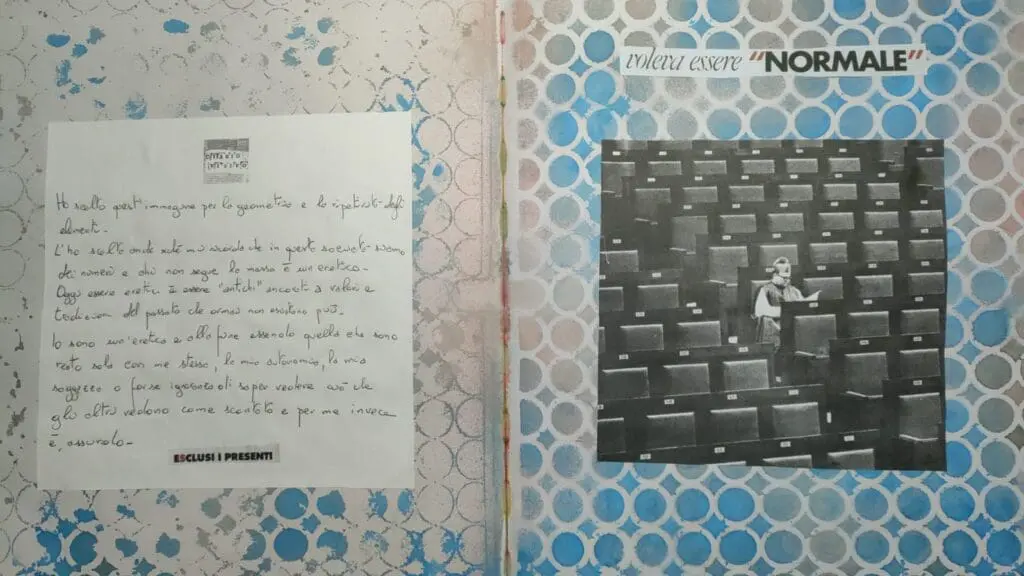 Ho scelto quest'immagine per la geometria e la ripetitività degli
elementi.
L'ho scelta anche xché mi ricorda che in questa società siamo
dei numeri e chi non segue la massa è un eretico.
Oggi essere eretici è essere "antichi" ancorati a valori e
tradizioni del passato che ormai non esistono più.
Io sono un'eretica e alla fine essendo quella che sono
resto sola con me stessa, la mia autonomia, la mia
saggezza o forse ignoranza di saper vedere ciò che
gli altri vedono come scontato e per me invece
è, assurdo.
ESCLUSI I PRESENTI
voleva essere "NORMALE"